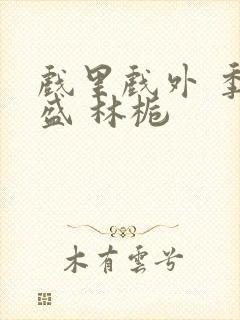 戲里戲外 季
盛 林栀
木有雲兮